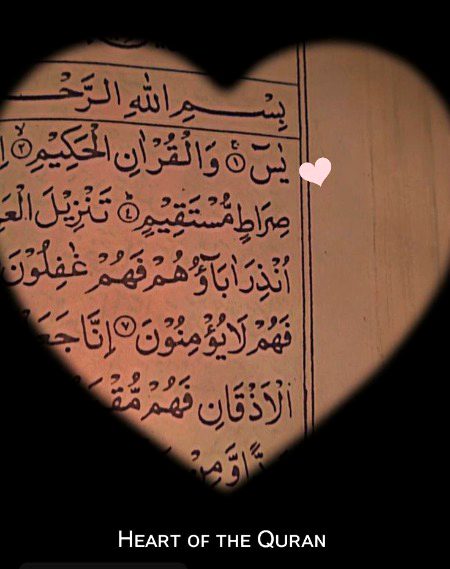 بِسْمِ اللّٰهِ الرَّحْـ
يٰسٓ ۚ ١ وَالْقُرْاٰنِ الْحَكِيْمِ ٢
صِرَاطٍ مُّسْتَقِيْمٍ ٤ تَنْزِيْلَ الْعَـ
اُنْذِرَ اٰبَآؤُهُمْ فَهُمْ غٰفِلُوْنَ
فَهُمْ لَا يُؤْمِنُوْنَ ٧ اِنَّا جَعَـ
الْاَذْقَانِ فَهُمْ مُّقْمَـ
دًّا وَّمِنْ
Heart of the Quran